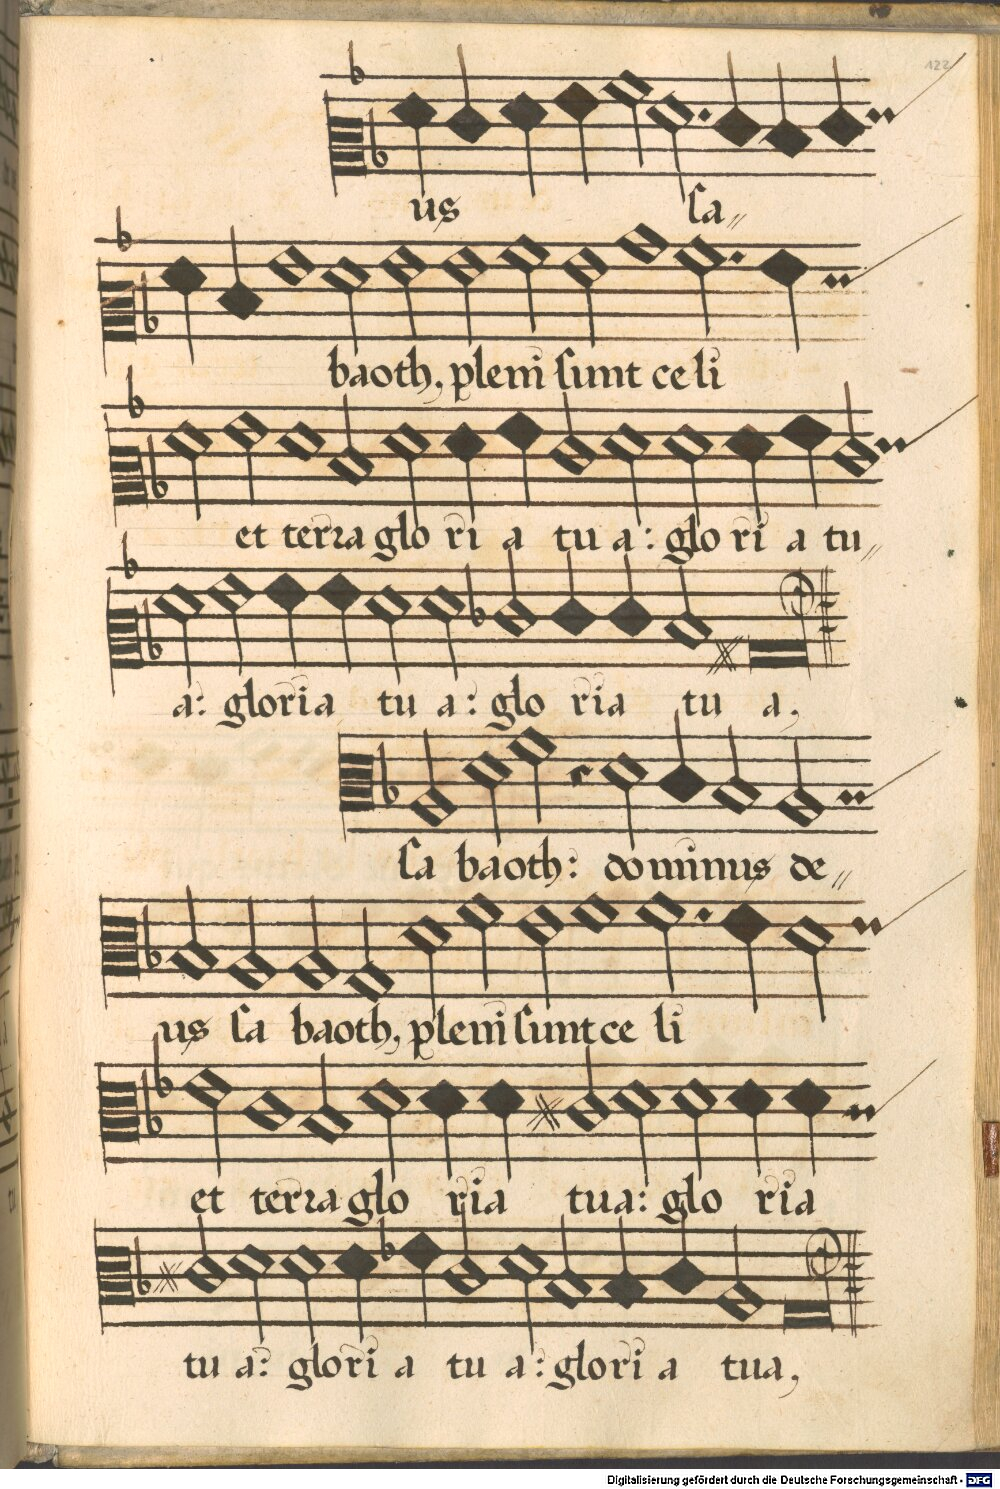 122
us sa„
baoth, pleni sunt celi
et terra glo ri a tu a: glo ri a tu„
a: gloria tu a: glo ria tu a,
sa baoth: dominus de„
us sa baoth, pleni sunt ce li
et terra glo ria tua: glo ria
tu a: glori a tu a: glori a tua,
Digitalisierung gefördert durch die Deutsche Forschungsgemeinschaft - DFG